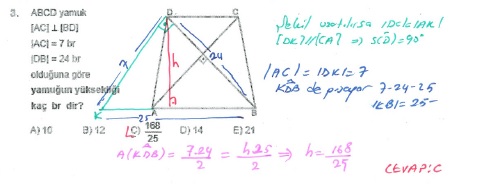 3. ABCD yamuk
[AC] ⊥ [BD]
|AC| = 7 br
|DB| = 24 br
olduğuna göre
yamuğun yüksekliği
kaç br dir?
D C
24
h
7
K 25 A B
Şekil uzatılırsa |DC|=|AK|
[DK]//[CA] ⇒ s(D̂)=90°
|AC|=|DK|=7
KDB de pisagor 7-24-25
|KB|=25
A) 10 B) 12 C) 168/25 D) 14 E) 21
A(KDB) = 7.24/2 = h.25/2 ⇒ h = 168/25
CEVAP: C